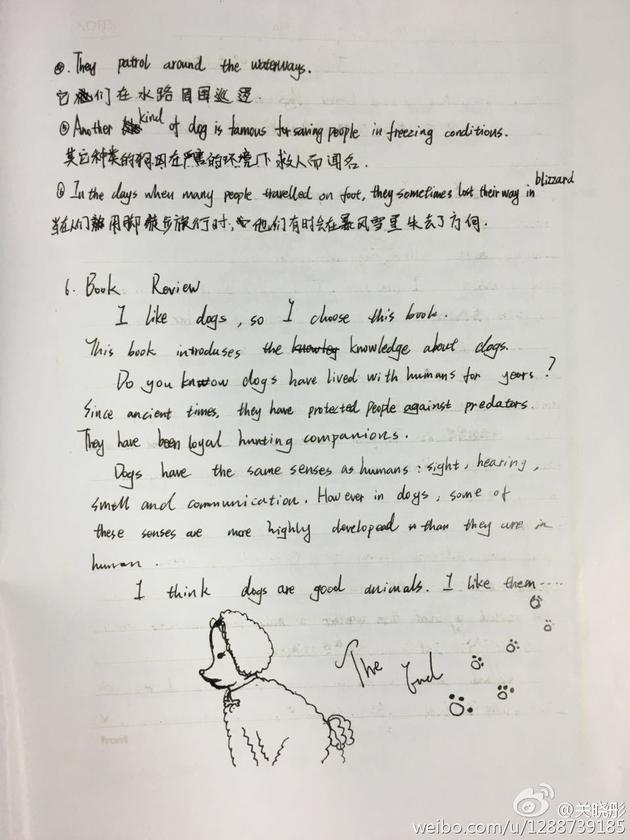 ④. They patrol around the waterways.
它们在水路周围巡逻.
⑤ Another kind of dog is famous for saving people in freezing conditions.
其它种类的狗因在严害的环境下救人而闻名.
⑥ In the days when many people travelled on foot, they sometimes lost their way in blizzard
当在人们用脚徒步旅行时, 他们有时会在暴风雪里失去了方向.
6. Book Review
I like dogs, so I choose this book.
This book introduses the knowledge about dogs.
Do you know dogs have lived with humans for years?
Since ancient times, they have protected people against predators.
They have been loyal hunting companions.
Dogs have the same senses as humans: sight, hearing,
smell and communication. However in dogs, some of
these senses are more highly developed than they are in
human.
I think dogs are good animals. I like them....
The End
front
@关晓彤
weibo.com/u/1288739185